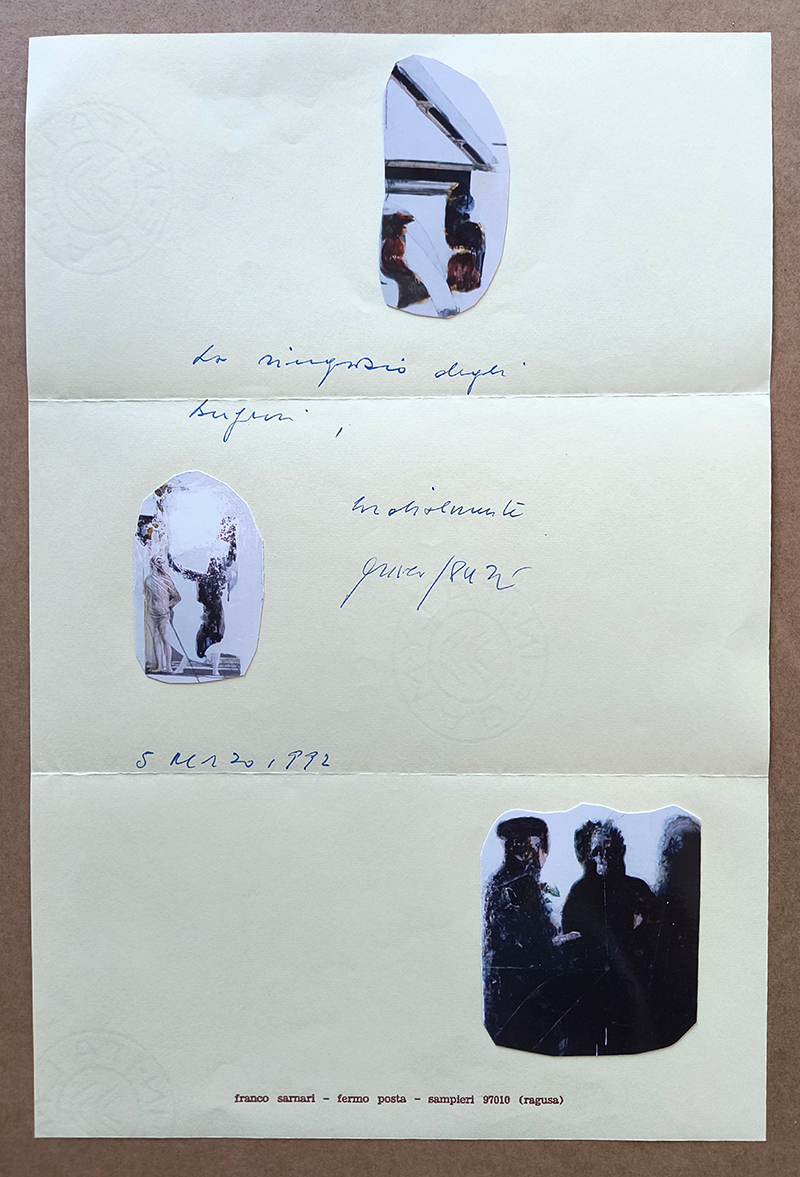 La ringrazio degli
auguri,
cordialmente
5 marzo 1992
franco sarnari - fermo posta - sampieri 97010 (ragusa)